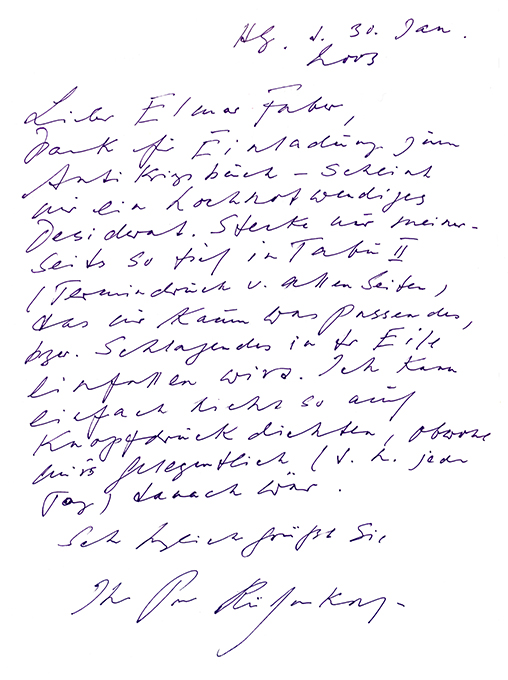 Hbg. d. 30. Jan.
2003
Lieber Elmar Faber,
Dank für Einladung zum
Antikriegsbuch – Scheint
mir ein hochnotwendiges
Desiderat. Stecke nur meiner-
seits so tief in Tabu II
(Termindruck v. allen Seiten,
das mir kaum was Passendes,
bzw. Schlagendes in dr Eile
einfallen wird. Ich kann
einfach nicht so auf
Knopfdruck dichten, obwohl
mir's gelegentlich (d. h. jeden
Tag) danach wär.
Sehr herzlich grüßt Sie
Ihr Peter Rühmkorf –